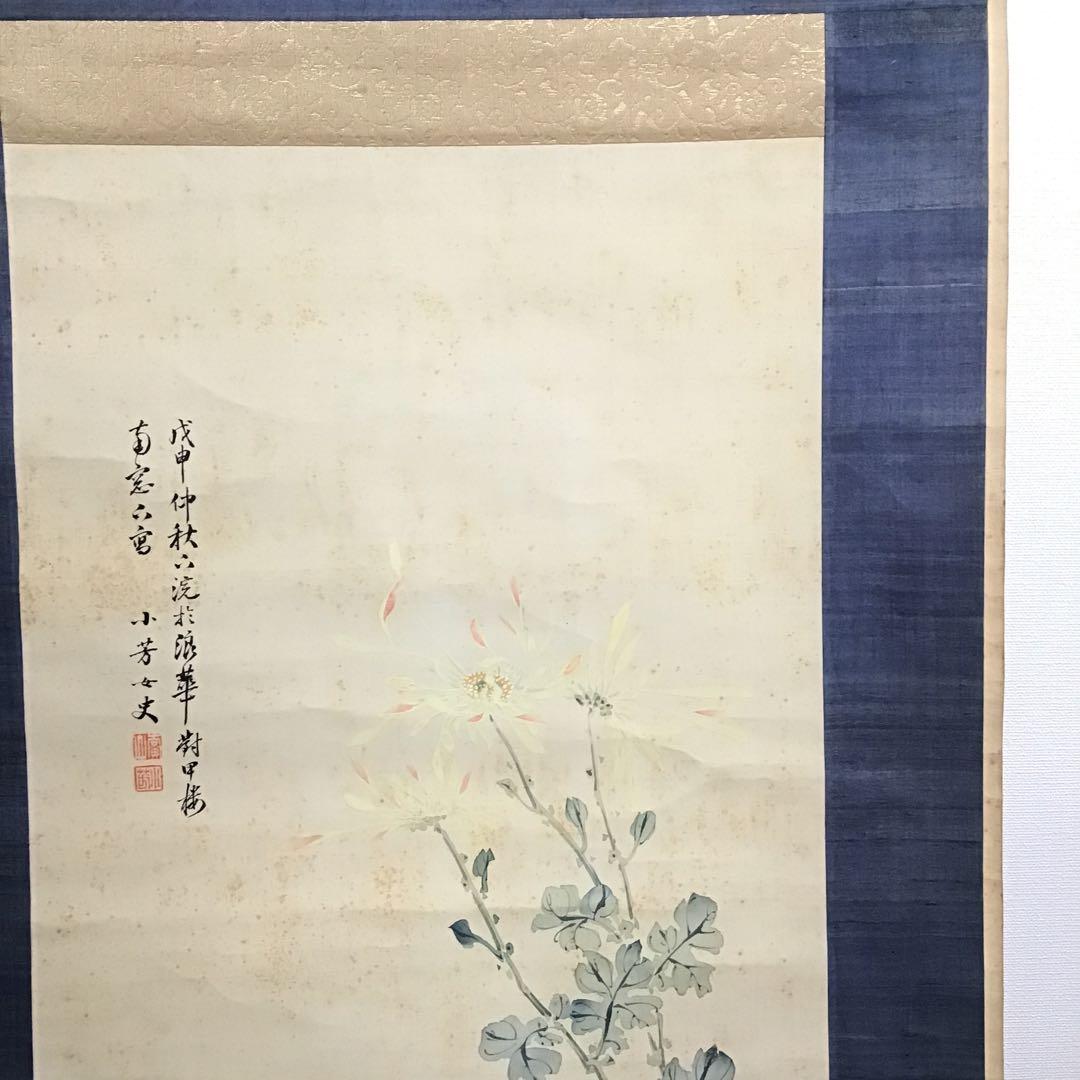 戊申仲秋下浣於浪華對甲楼
南窓下寫 小芳女史